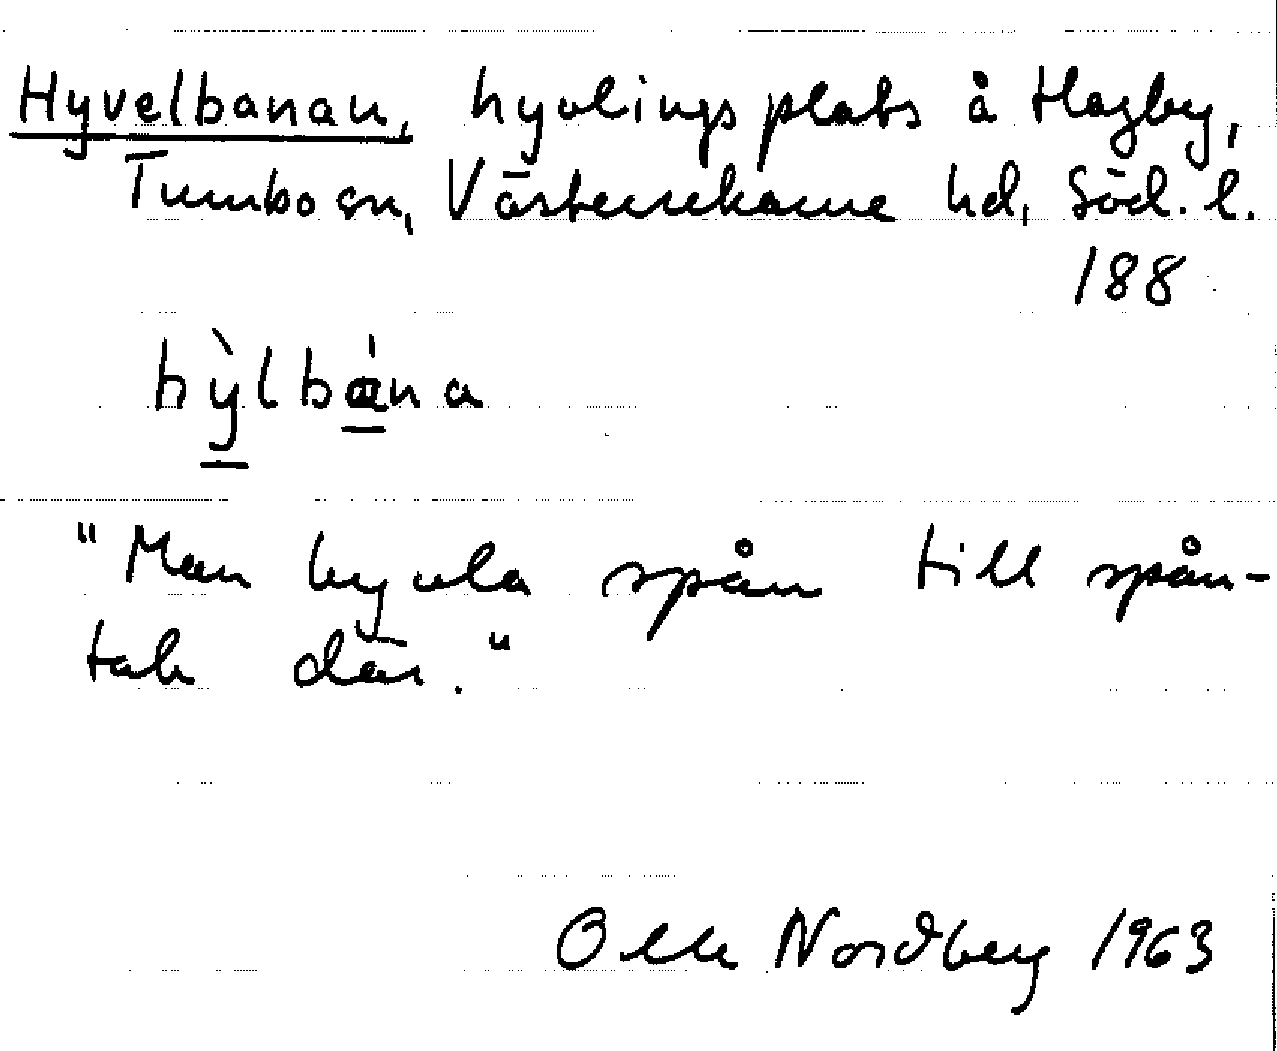 Hyvelbanan, hyvlingsplats å Hagby,
Tumbo sn, Västerrekarne hd, Söd. l.
188
hỳ̠lbá̠na
"Man hyvla spån till spån-
tak där."
Olle Nordberg 1963